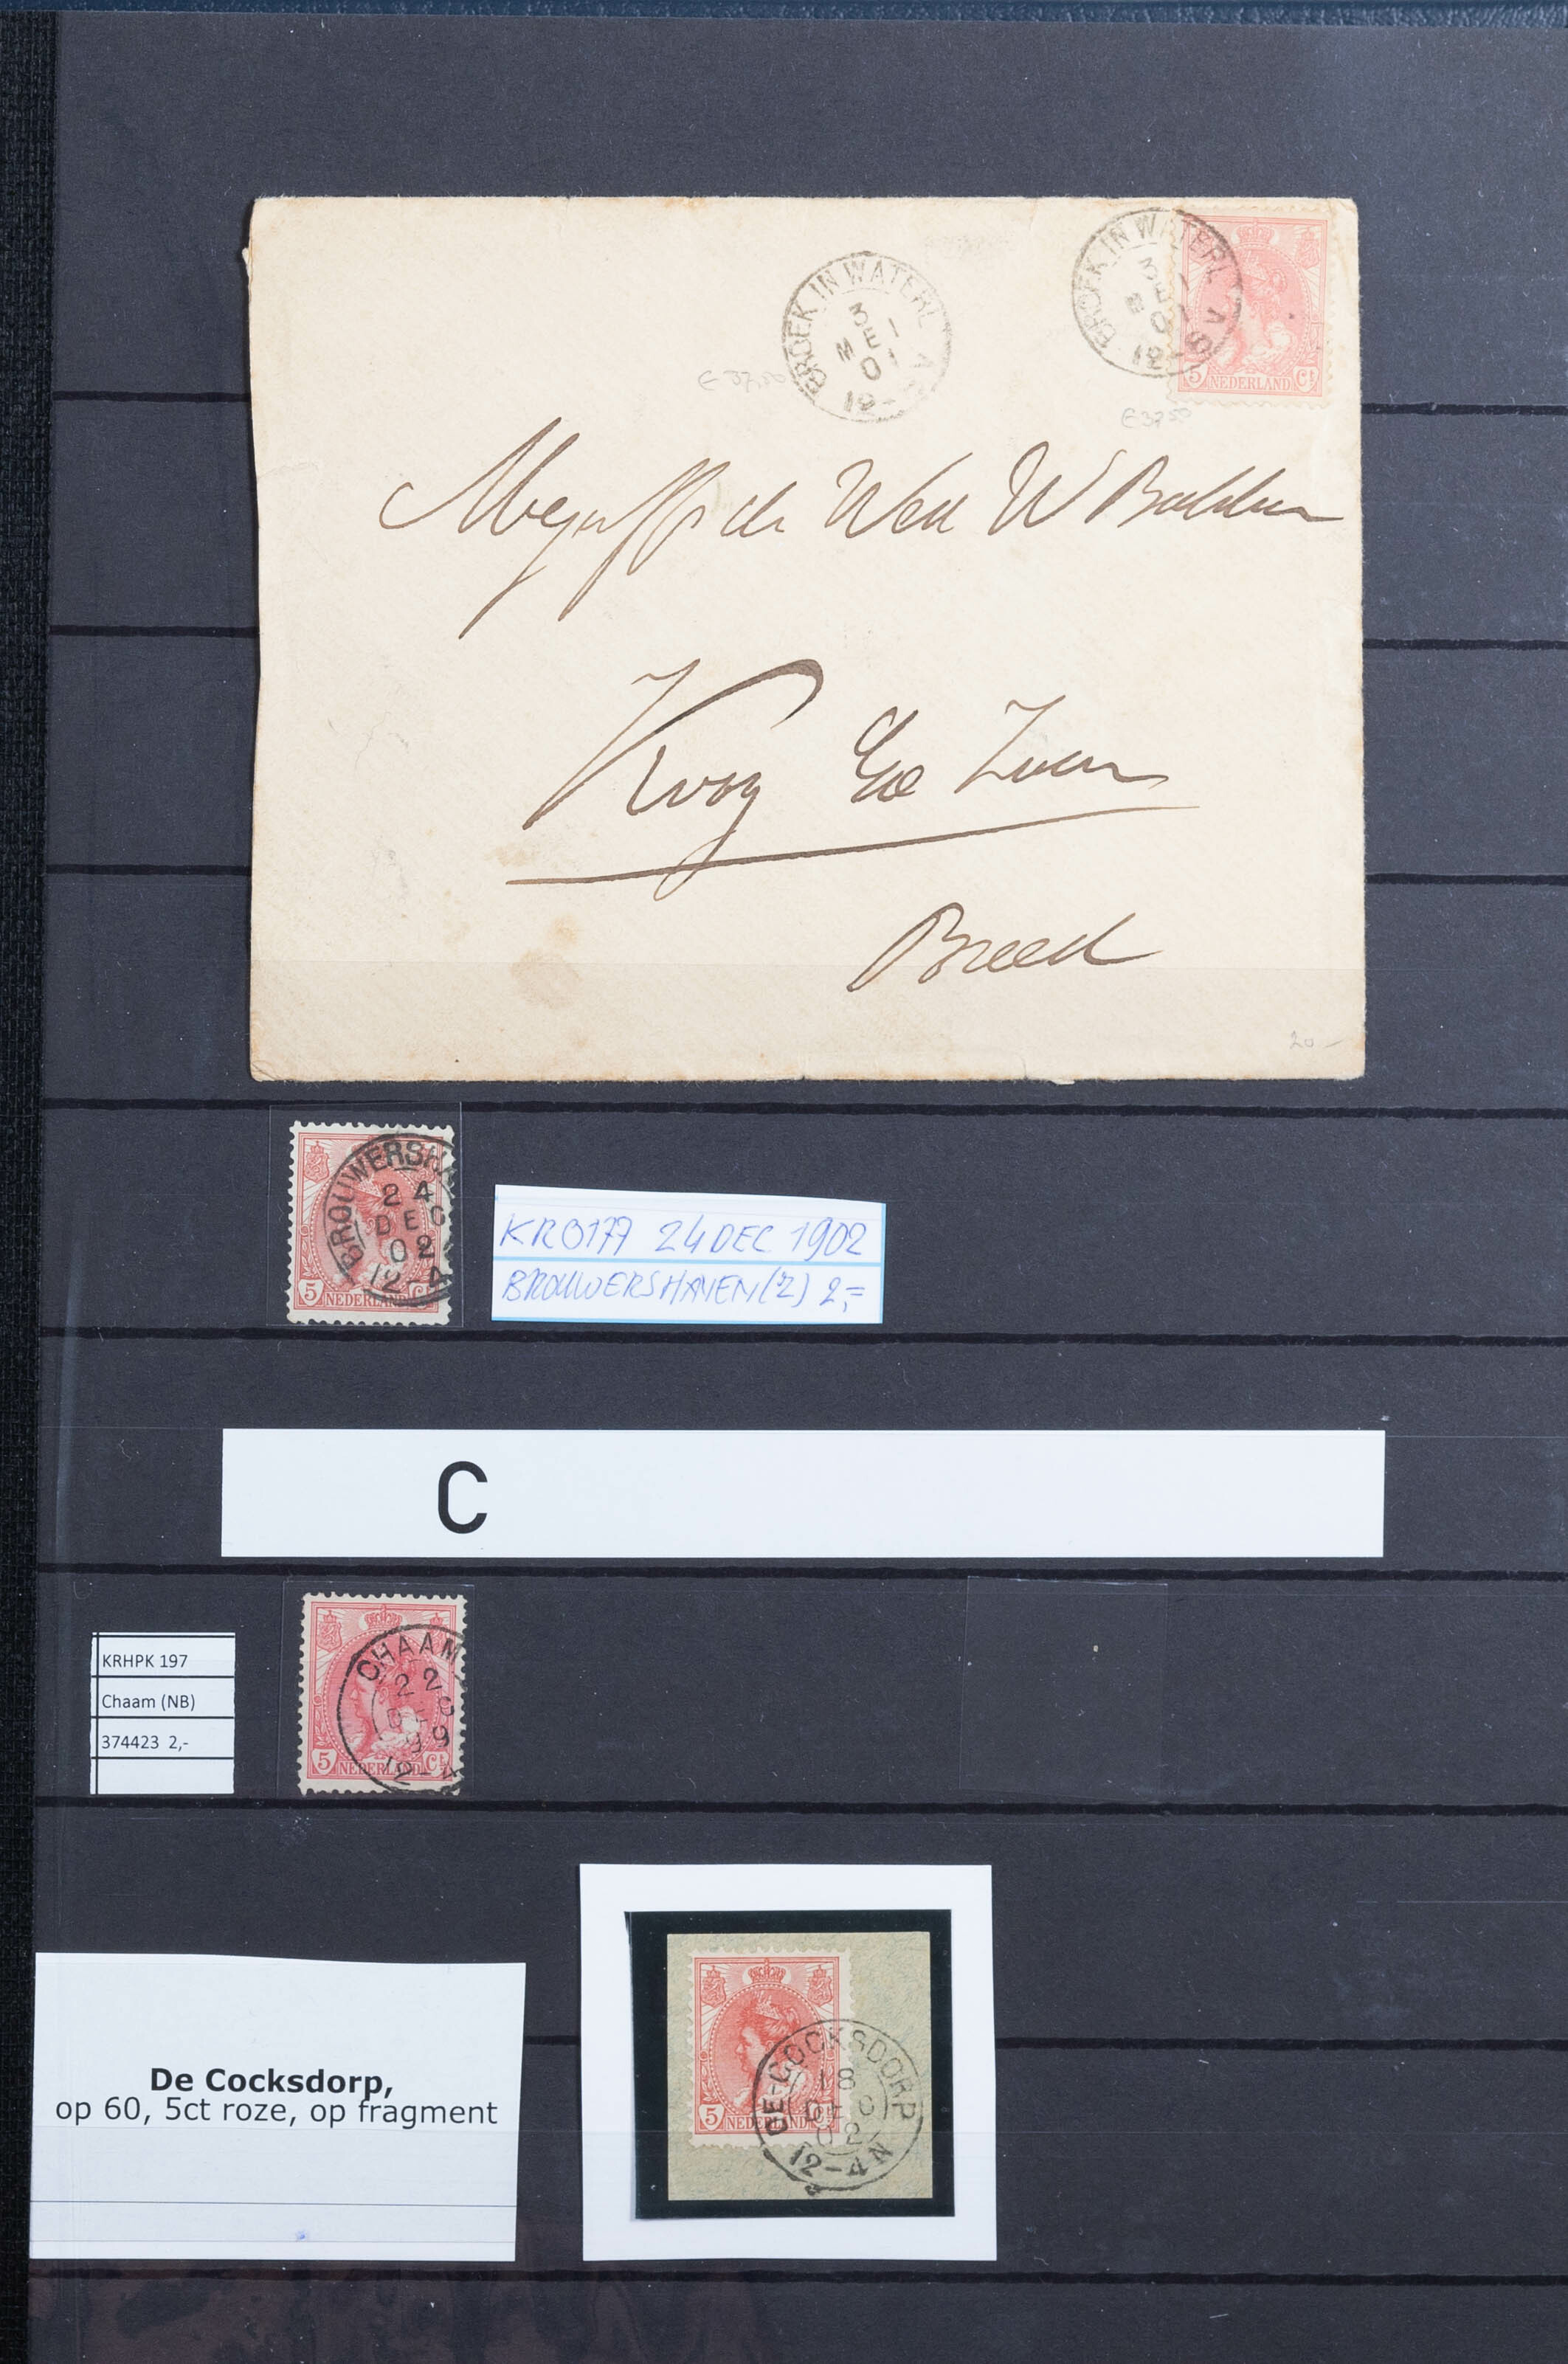 BROEK IN WATERL A
3 1
ME
01
12-
BROEK IN WATERL A
3 1
ME
01
12-8
5 NEDERLAND Ct
€ 37,50
€ 37,50
de W
Koog
20,-
BROUWERSHA
24
DEC
02
12-4
5 NEDERLAND Ct
24 DEC 1902
BROUWERSHAVEN (Z) 2,=
C
KRHPK 197
Chaam (NB)
374423 2,-
CHAAM
22
DEC
99
12-4
5 NEDERLAND Ct
De Cocksdorp,
op 60, 5ct roze, op fragment
DE-COCKSDORP
18
DEC
02
12-4N
5 NEDERLAND Ct